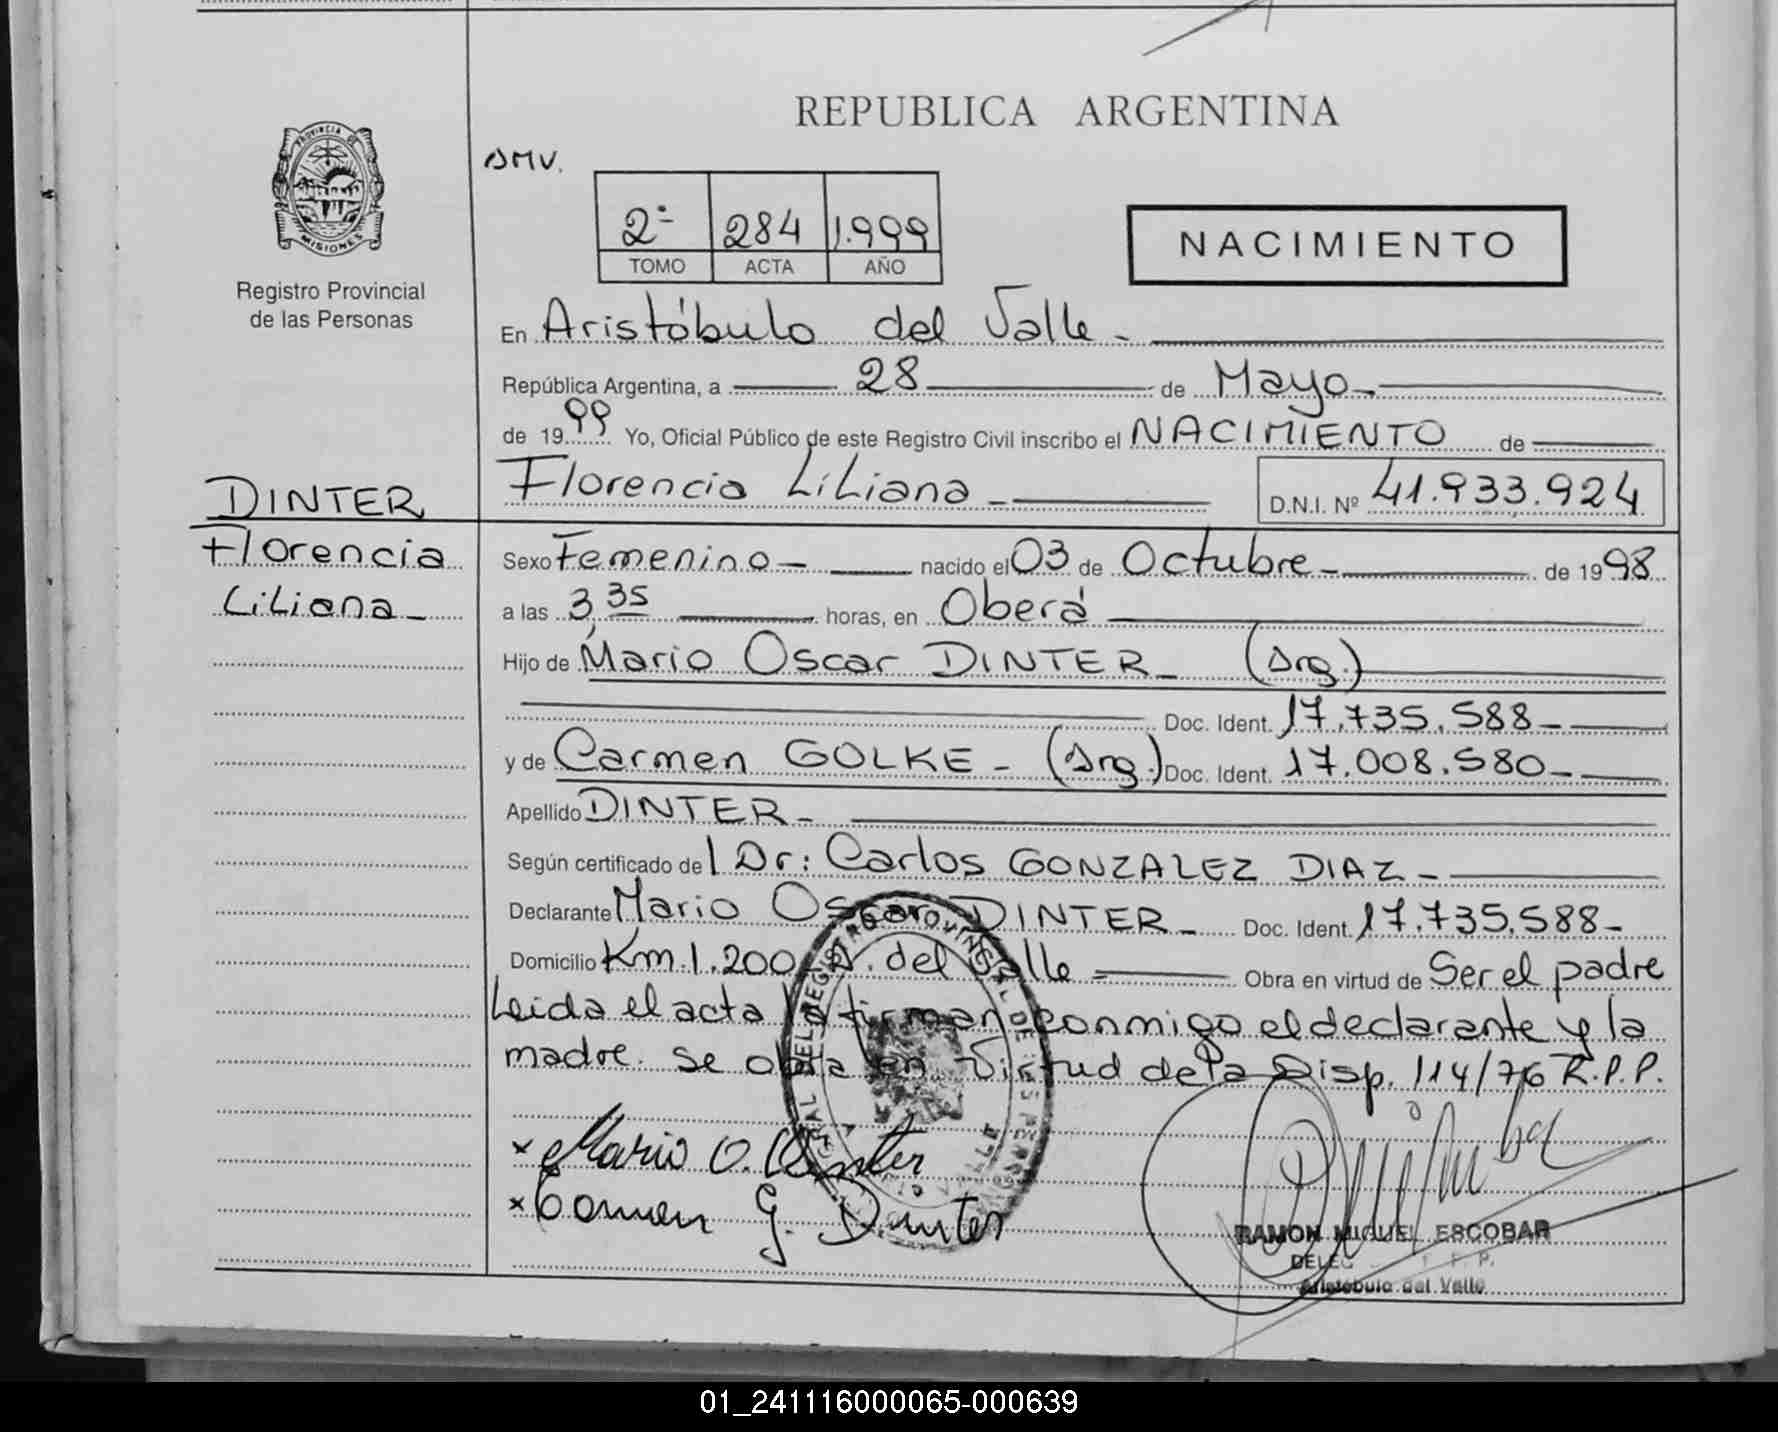 REPUBLICA ARGENTINA
PROVINCIA DE
MISIONES
Registro Provincial
de las Personas
2º 284 1.999
TOMO ACTA AÑO
NACIMIENTO
En Aristóbulo del Valle -
República Argentina, a 28 de Mayo -
de 1999 Yo, Oficial Público de este Registro Civil inscribo el NACIMIENTO de
Florencia Liliana - D.N.I. Nº 41.933.924
DINTER
Florencia
Liliana -
Sexo Femenino - nacido el 03 de Octubre - de 1998
a las 3,35 horas, en Oberá
Hijo de Mario Oscar DINTER - (Arg.)
Doc. Ident. 17.735.588 -
y de Carmen GOLKE - (Arg.) Doc. Ident. 17.008.580 -
Apellido DINTER -
Según certificado del Dr: Carlos GONZALEZ DIAZ -
Declarante Mario Oscar DINTER - Doc. Ident. 17.735.588 -
Domicilio Km 1.200 A. del Valle - Obra en virtud de Ser el padre
Leida el acta la firman conmigo el declarante y la
madre. Se obra en Virtud de la Disp. 114/76 R.P.P.
x Mario O. Dinter
x Carmen G. Dinter
RAMON MIGUEL ESCOBAR
Aristobulo del Valle
01_241116000065-000639